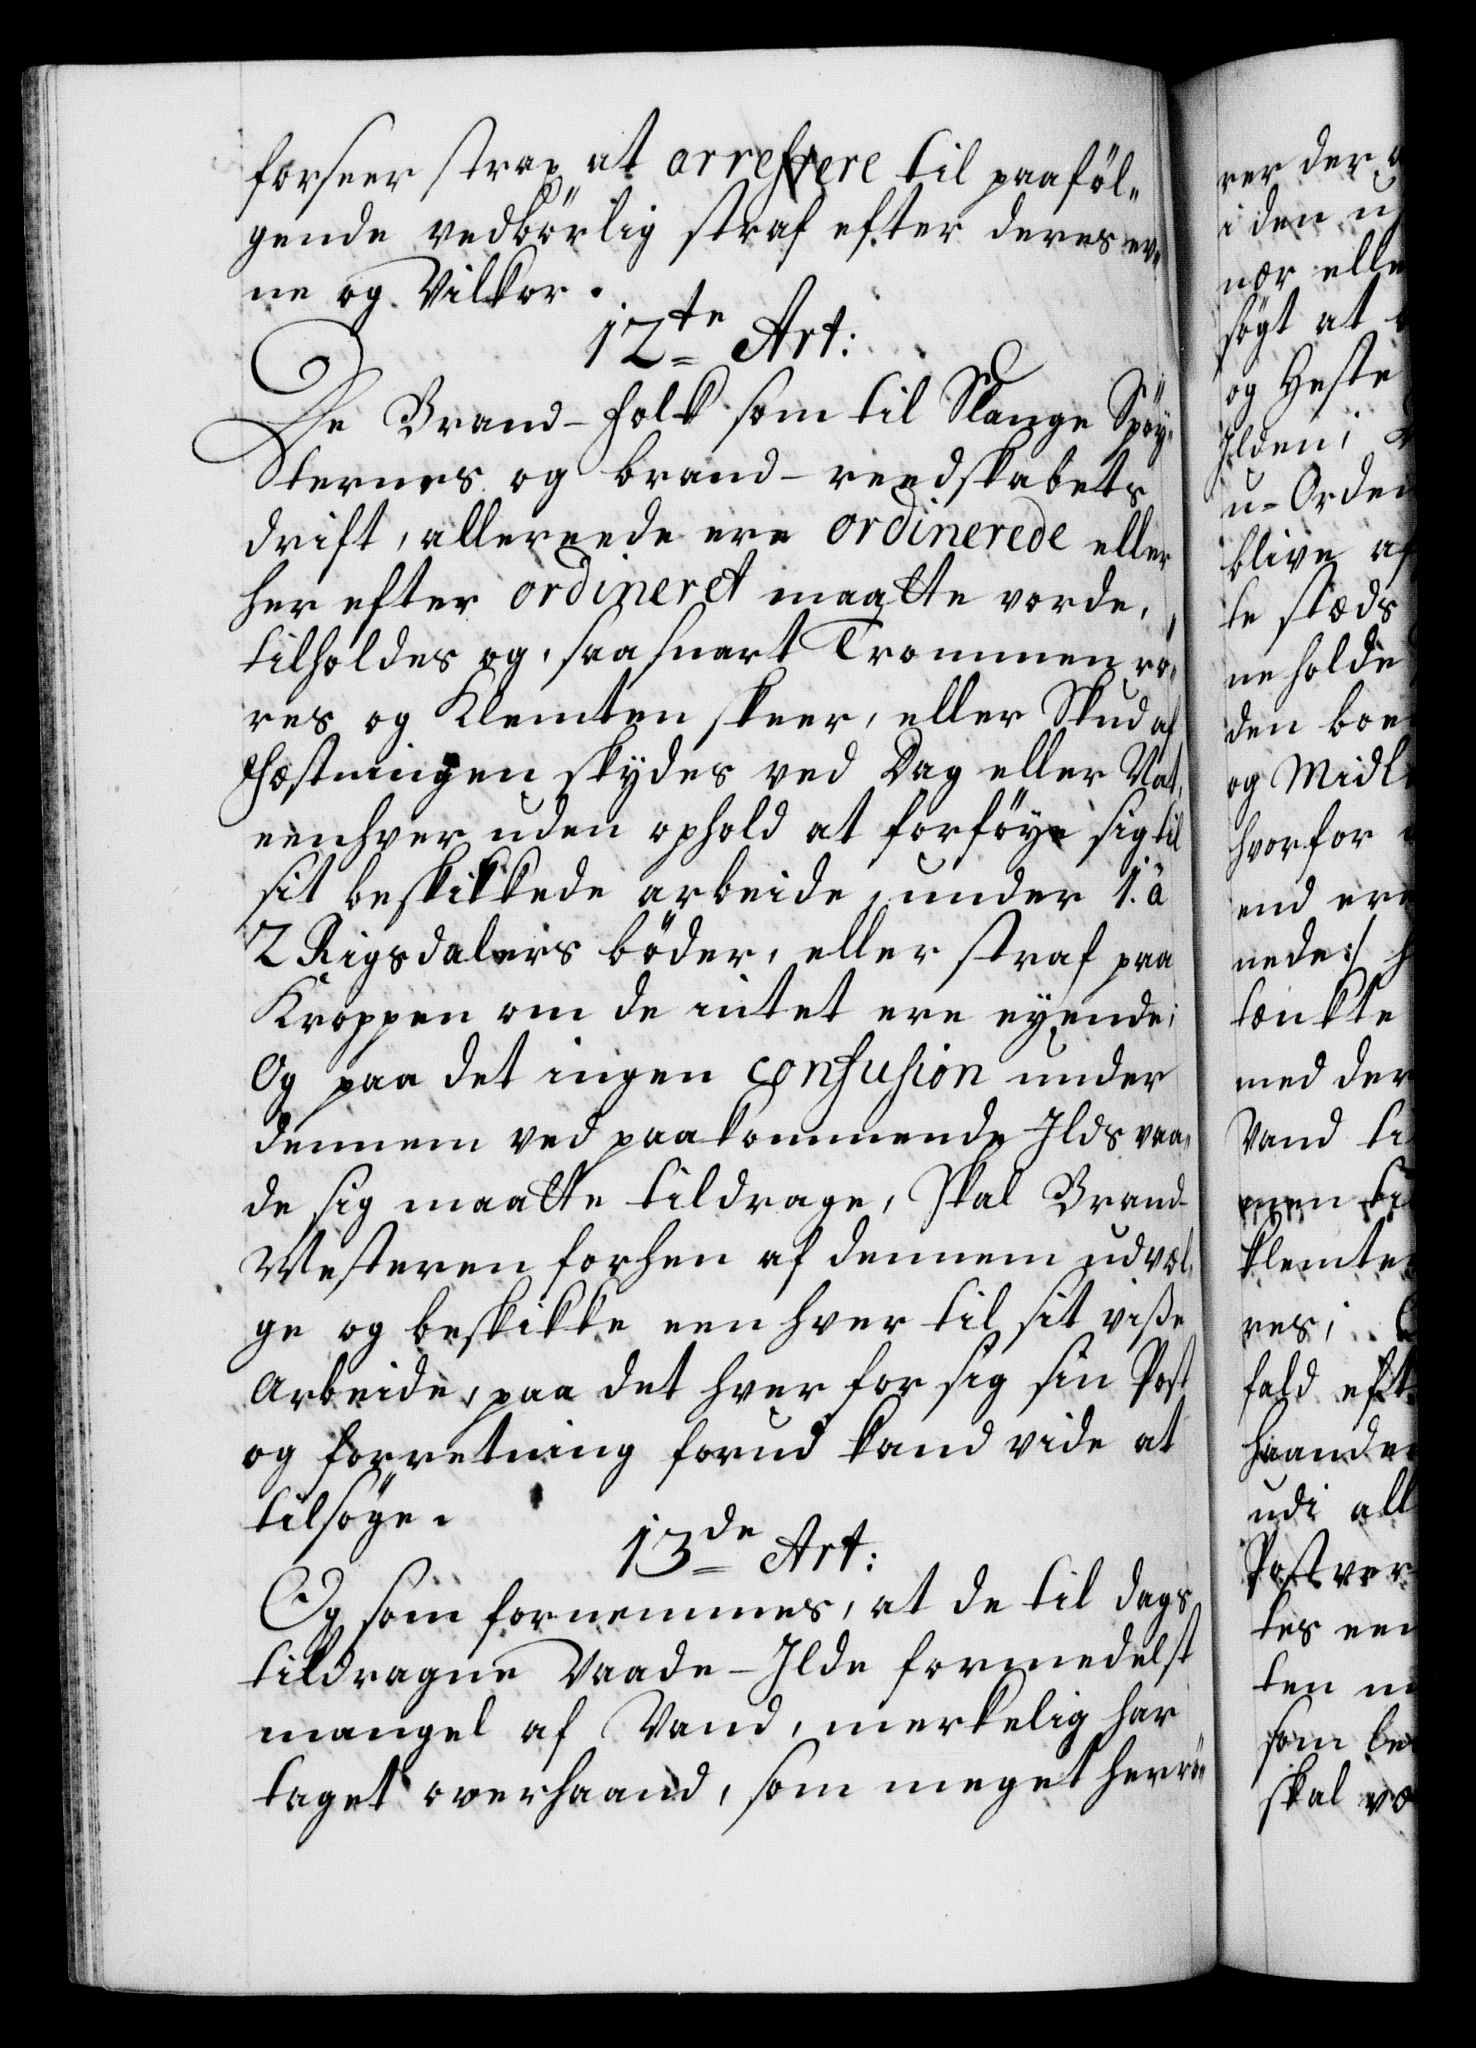 forseer strax at arrestere til paaföl„
gende vedbörlig straf efter deres ev„
ne og Vilkor.
12te Art:
De Brand-Folk som til Slange Spöy„
ternes og brand-reedskabets
drift, allereede ere ordinerede eller
her efter ordineret maatte vorde,
tilholdes og, saasnart Trommen rö„
res og Klemten skeer, eller Skud af
Fæstningen skydes ved Dag eller Nat,
eenhver uden ophold at forföye sig til
sit beskikkede arbeide, under 1. à
2 Rigsdalers böder, eller straf paa
Kroppen om de intet ere eyende;
Og paa det ingen confusion under
dennem ved paakommende Ildsvaa„
de sig maatte tildrage, skal Brand-
Mesteren forhen af dennem udvæl„
ge og beskikke een hver til sit visse
Arbeide, paa det hver for sig sin Post
og forretning forud kand vide at
tilsöge.
13de Art:
Og som fornemmes, at de til dags
tildragne Vaade-Ilde formedelst
mangel af Vand, merkelig har
taget overhaand, som meget herrö„
rer der
i den
nær elle
sögt at
og Heste
Ilden;
u-Orden
blive af
te stæds
ne holde
den boe
og Midl
hvorfor
end ere
nede:/
tænkte
med der
Vand ti
men ti
klemte
res;
fald eft
haande
udi all
Post ver
tes een
ten
som be
skal væ